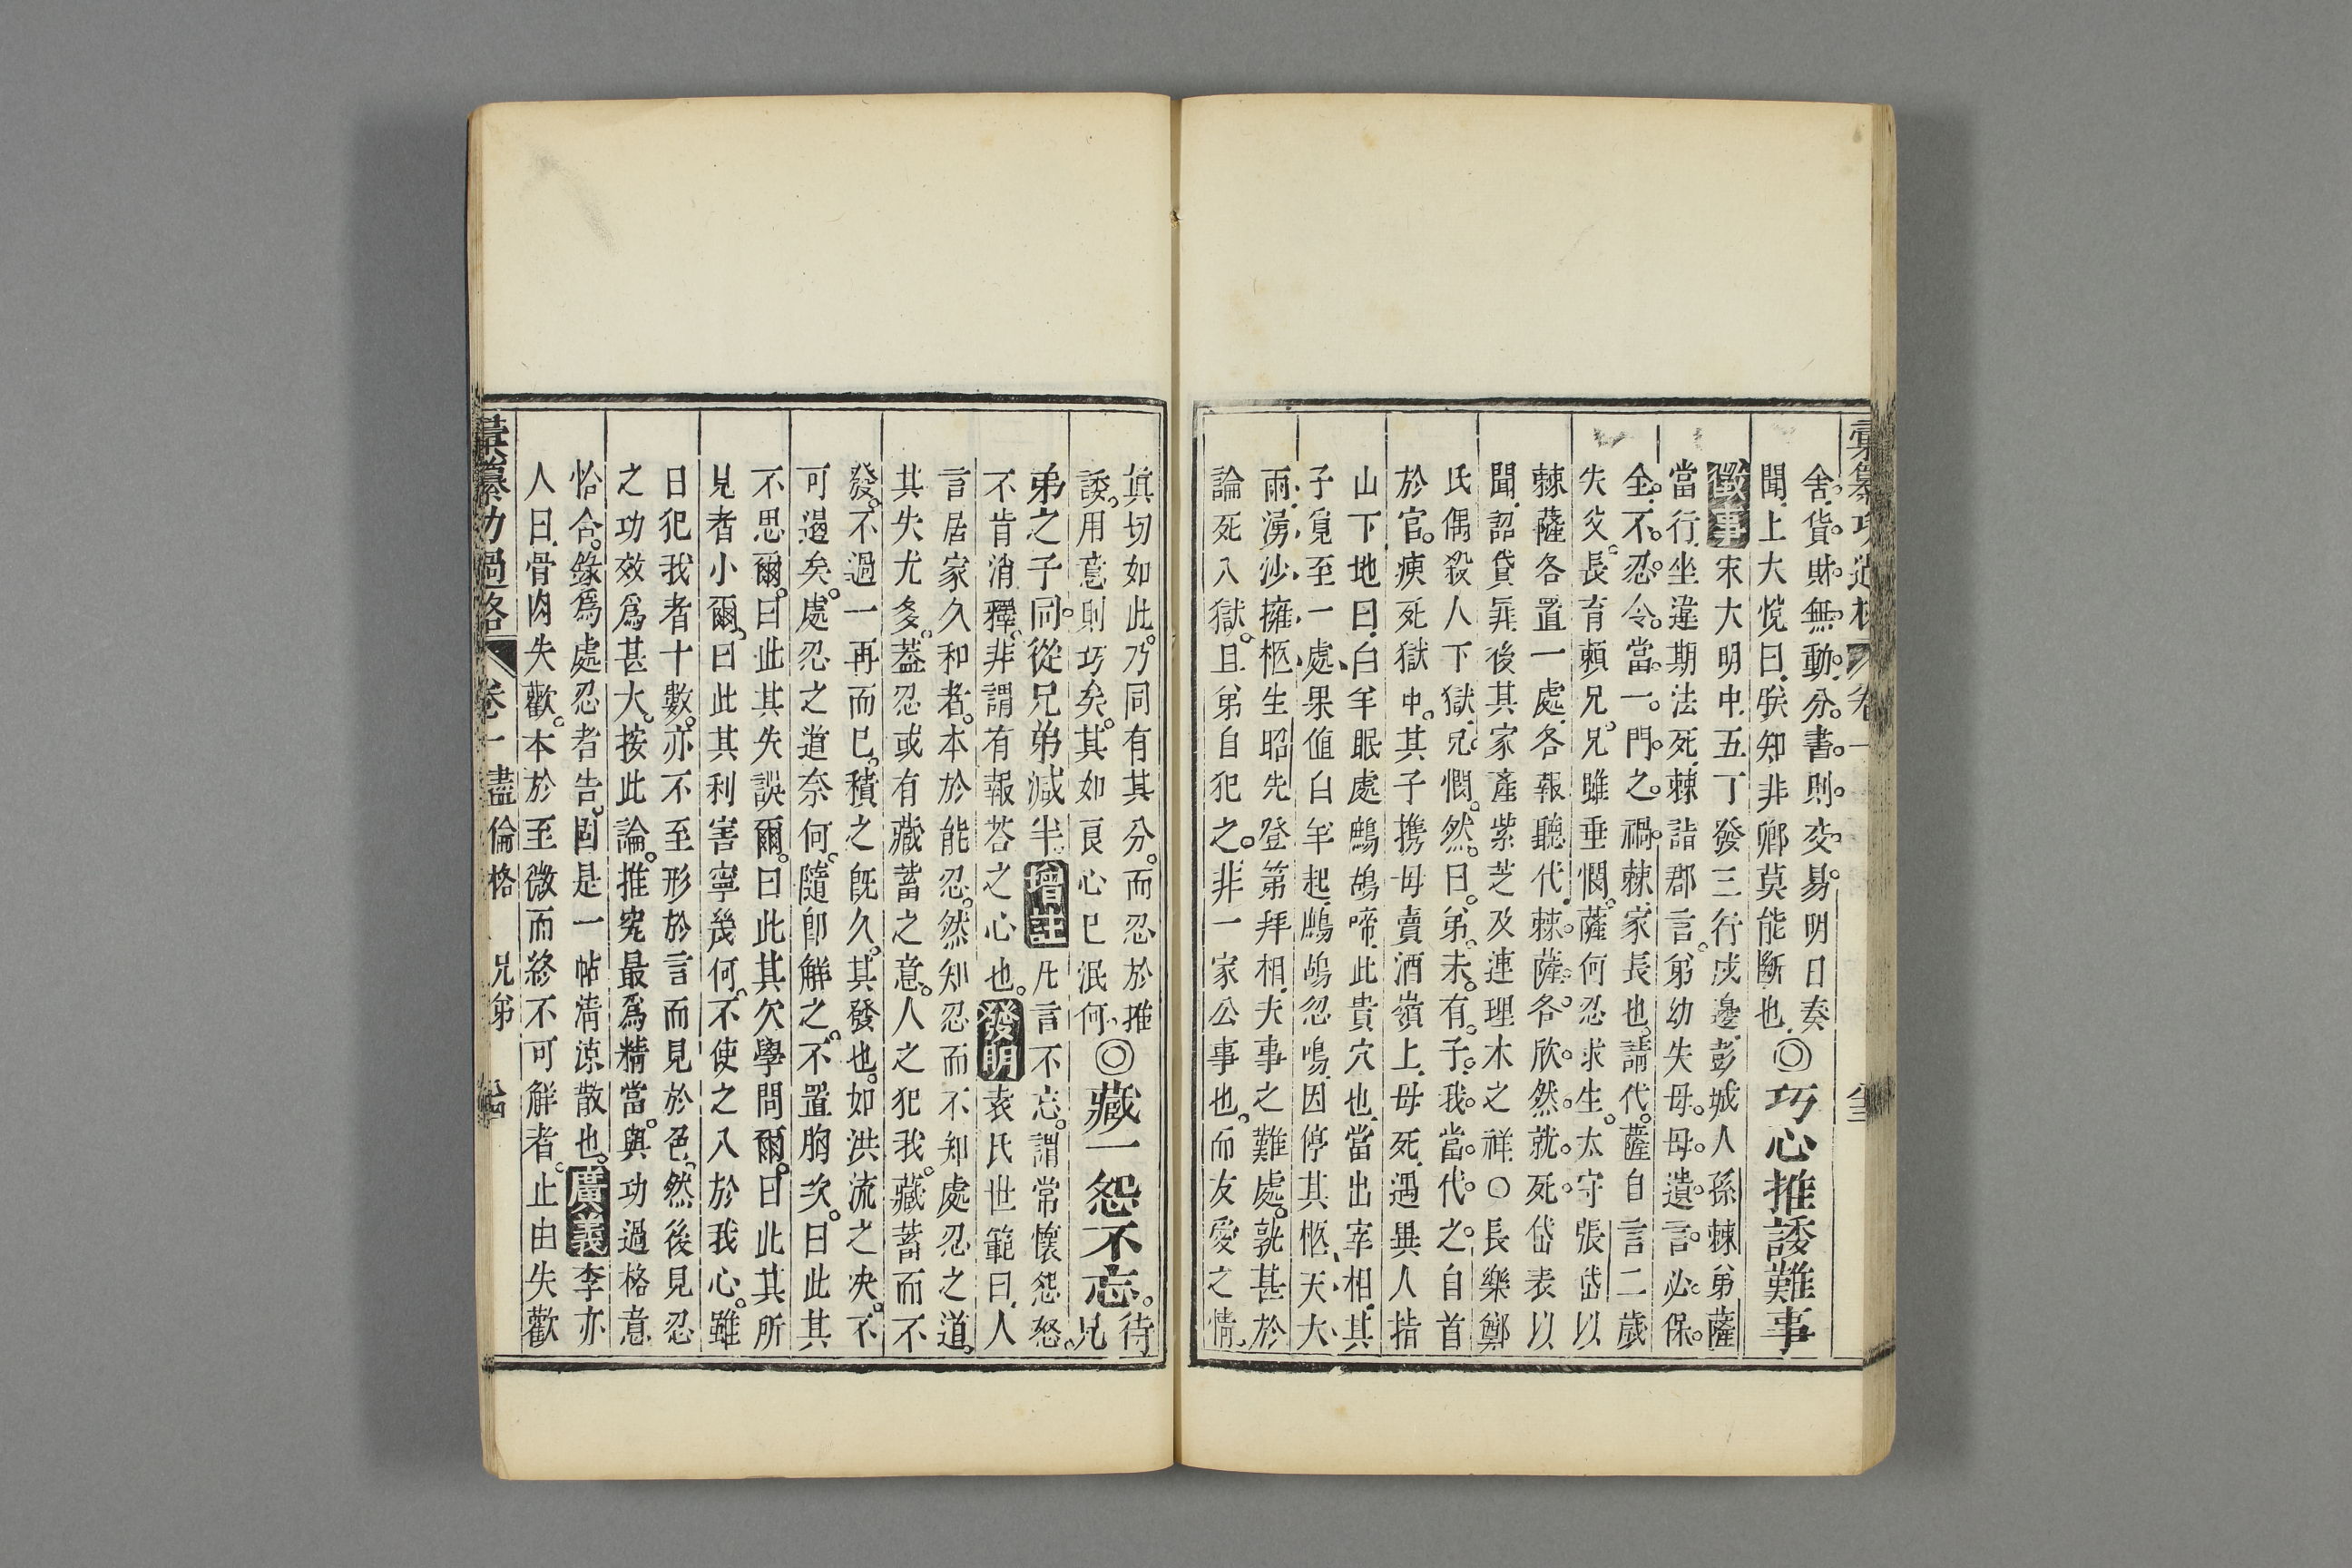 彙纂功過格 卷一 全三
舍貨財無動分書則交易明日奏
聞上大悅曰朕知非卿莫能斷也◎巧心推諉難事
徵事宋大明中五丁發三行戍邊彭城人孫棘弟薩
當行坐違期法死棘詣郡言弟幼失母母遺言必保
全不忍令當一門之禍棘家長也請代薩自言二歲
失父長育賴兄兄雖垂憫薩何忍求生太守張岱以
棘薩各置一處各報聽代棘薩各欣然就死岱表以
聞詔貸罪後其家產紫芝及連理木之祥○長樂鄭
氏偶殺人下獄兄憫然曰弟未有子我當代之自首
於官瘐死獄中其子携母賣酒嶺上母死遇異人指
山下地曰白羊眠處鷓鴣啼此貴穴也當出宰相其
子覓至一處果值白羊起鷓鴣忽鳴因停其柩天大
雨湧沙擁柩生昭先登第拜相夫事之難處孰甚於
論死入獄且弟自犯之非一家公事也而友愛之情
眞切如此乃同有其分而忍於推
諉用意則巧矣其如良心已泯何◎藏一怨不忘待兄
弟之子同從兄弟減半增註凡言不忘謂常懷怨怒
不肯消釋非謂有報荅之心也發明袁氏世範曰人
言居家久和者本於能忍然知忍而不知處忍之道
其失尤多蓋忍或有藏蓄之意人之犯我藏蓄而不
發不過一再而已積之旣久其發也如洪流之決不
可遏矣處忍之道奈何隨卽解之不置胸次曰此其
不思爾曰此其失誤爾曰此其欠學問爾曰此其所
見者小爾曰此其利害寧幾何不使之入於我心雖
日犯我者十數亦不至形於言而見於色然後見忍
之功效爲甚大按此論推究最爲精當與功過格意
恰合錄爲處忍者告固是一帖淸涼散也廣義李亦
人曰骨肉失歡本於至微而終不可解者止由失歡
彙纂功過格 卷一 盡倫格 兄弟